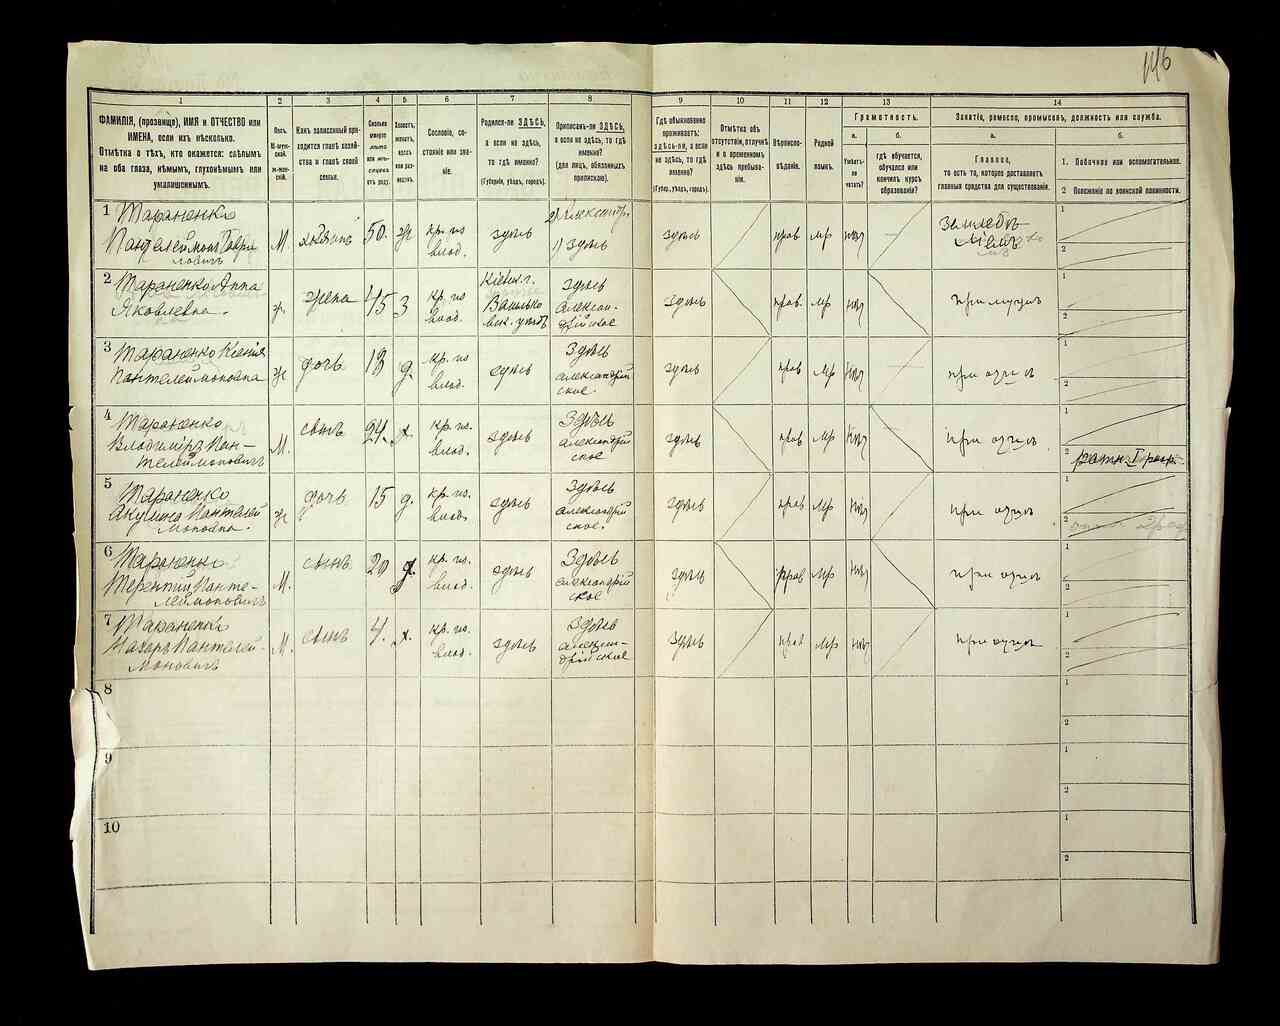 146
1 2 3 4 5 6 7 8 9 10 11 12 13 14
ФАМИЛІЯ, (прозвище), ИМЯ и ОТЧЕСТВО или
ИМЕНА, если ихъ нѣсколько.
Отмѣтка о тѣхъ, кто окажется: слѣпымъ
на оба глаза, нѣмымъ, глухонѣмымъ или
умалишеннымъ.
Полъ.
М-муж-
ской.
ж-жен-
скій.
Какъ записанный при-
ходится главѣ хозяй-
ства и главѣ своей
семьи.
Сколько
минуло
лѣтъ
или мѣ-
сяцевъ
отъ роду.
Холостъ,
женатъ,
вдовъ
или раз-
веденъ.
Сословіе, со-
стояніе или зва-
ніе.
Родился-ли ЗДѢСЬ,
а если не здѣсь,
то гдѣ именно?
(Губернія, уѣздъ, городъ).
Приписанъ-ли ЗДѢСЬ,
а если не здѣсь, то гдѣ
именно?
(для лицъ, обязанныхъ
припискою).
Гдѣ обыкновенно
проживаетъ:
здѣсь-ли, а если
не здѣсь, то гдѣ
именно?
(Губер., уѣздъ, городъ).
Отмѣтка объ
отсутствіи, отлучкѣ
и о временномъ
здѣсь пребыва-
ніи.
Вѣроиспо-
вѣданіе.
Родной
языкъ.
Грамотность.
а.
Умѣетъ-
ли
читать?
б.
гдѣ обучается,
обучался или
кончилъ курсъ
образованія?
Занятіе, ремесло, промыселъ, должность или служба.
а.
Главное,
то есть то, которое доставляетъ
главныя средства для существованія.
б.
1. Побочное или вспомогательное.
2 Положеніе по воинской повинности.
1 Тараненко
Пантелеймонъ Гаври
ловичъ
М. хозяинъ 50. ж кр. из
влад. здѣсь 2) Александр.
1) здѣсь здѣсь прав мр
1
2
2 Тараненко Анна
Яковлевна.
ж. жена 45 З кр. из
влад. Кіевск. г.
здѣсь
Алексан-
дрійское здѣсь прав. мр при мужѣ
1
2
3 Тараненко Ксенія
Пантелеймоновна ж дочь 18 д. кр. из
влад. здѣсь Здѣсь
александрій
ское. здѣсь прав мр при отцѣ
1
2
4 Тараненко
Владиміръ Пан-
телеймоновичъ М. сынъ 24. х. кр. из.
влад. здѣсь Здѣсь
александрій
ское здѣсь прав мр при отцѣ
1
2 ратн. I разр.
5 Тараненко
Акулина Пантелей
моновна. ж дочь 15 д. кр. из.
влад. здѣсь Здѣсь
александрій
ское. здѣсь прав мр при отцѣ
1
2
6 Тараненко
Терентий Панте-
леймоновичъ М. сынъ 20 кр. из.
влад. здѣсь Здѣсь
александрій
ское здѣсь прав мр при отцѣ
1
2
7 Тараненко
Назаръ Пантелей-
моновичъ М. сынъ 4. х. кр. из.
влад. здѣсь Здѣсь
алексан-
дрійское здѣсь прав мр при отцѣ
1
2
8
1
2
9
1
2
10
1
2